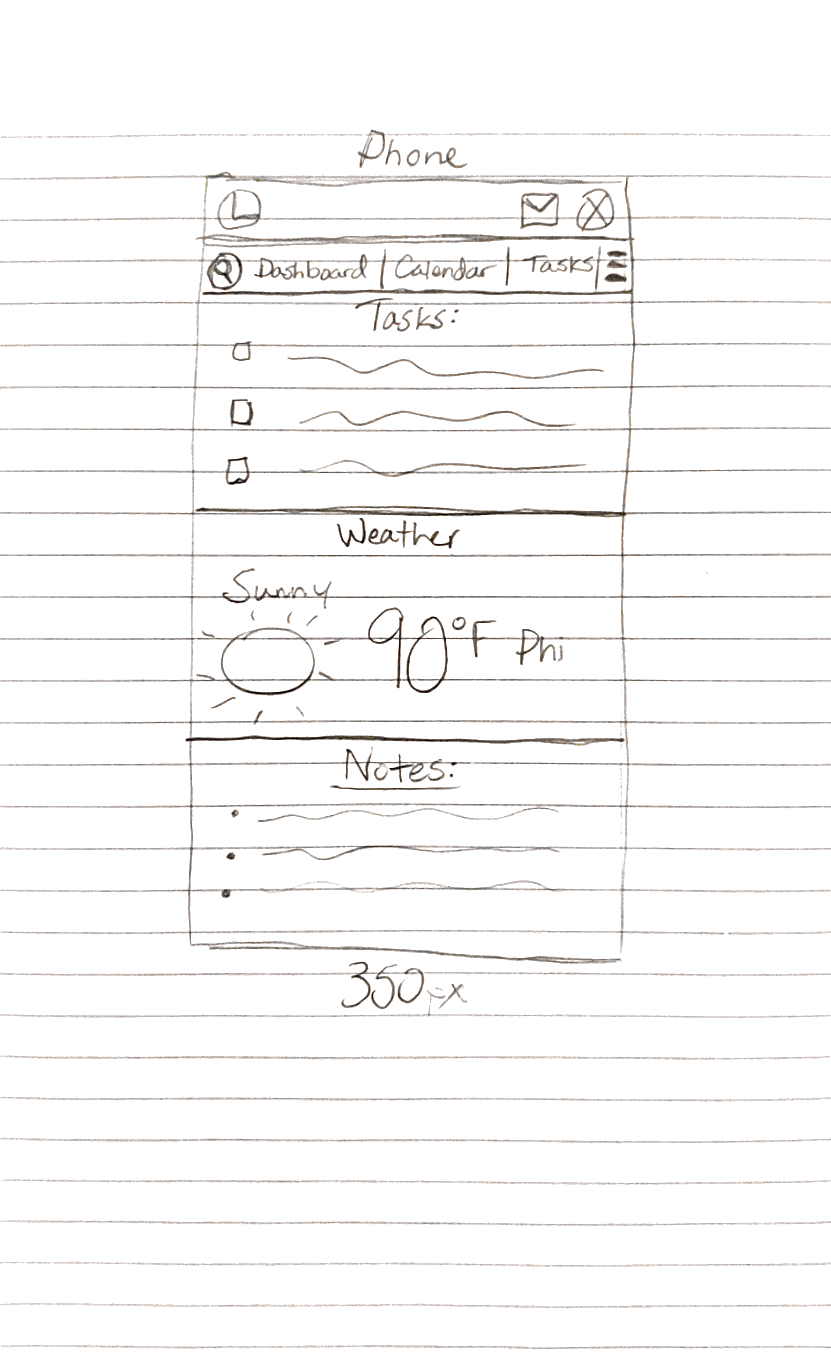 Phone
Dashboard | Calendar | Tasks
Tasks:
Weather
Sunny
90°F Phi
Notes:
350px